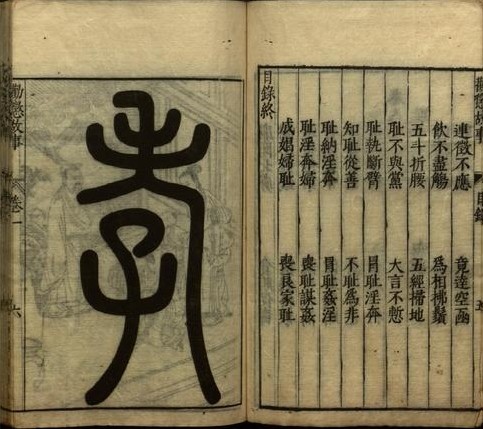 勸懲故事 目錄 五
連徵不應 竟達空函
飲不盡觴 爲相拂鬚
五斗折腰 五經掃地
耻不與黨 大言不慙
耻執斷臂 冒耻淫奔
知耻從善 不耻爲非
耻納淫奔 冒耻姦淫
耻淫奔婦 喪耻謀姦
成娼婦耻 喪良家耻
目錄終
孝
勸懲故事 卷一 六